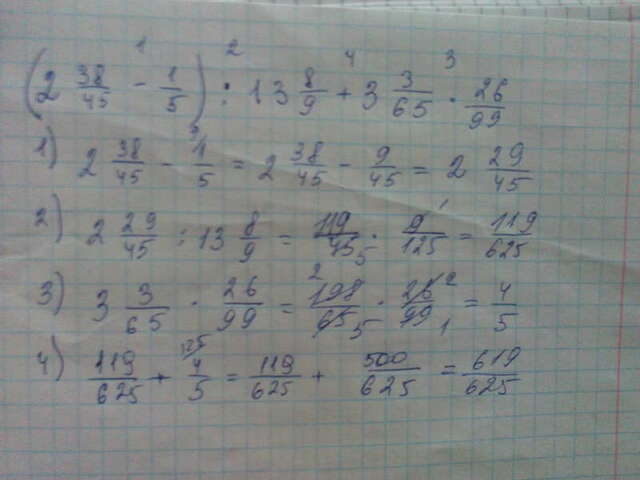 1 2 4 3
(2 38/45 - 1/5) : 13 8/9 + 3 3/65 · 26/99
1) 2 38/45 - 1/5 = 2 38/45 - 9/45 = 2 29/45
2) 2 29/45 : 13 8/9 = 119/45 5 · 9 1/125 = 119/625
3) 3 3/65 · 26/99 = 2 198/65 5 · 26 2/99 1 = 4/5
4) 119/625 + 125 4/5 = 119/625 + 500/625 = 619/625